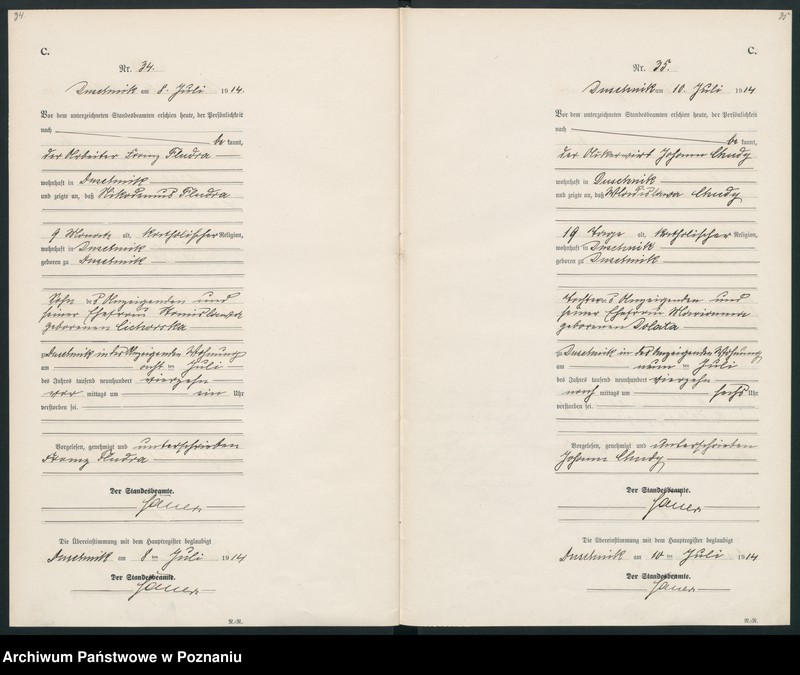 34
C.
Nr. 34.
Duschnik am 8. Juli 1914.
Vor dem unterzeichneten Standesbeamten erschien heute, der Persönlichkeit
nach
be kannt,
der Arbeiter Franz Fludra
wohnhaft in Duschnik
und zeigte an, daß Nikodemus Fludra
9 Monate alt, katholischer Religion,
wohnhaft in Duschnik
geboren zu Duschnik
Sohn des Anzeigenden und
seiner Ehefrau Stanislawa
geborenen Cichorska
zu Duschnik in des Anzeigenden Wohnung
am acht ten Juli
des Jahres tausend neunhundert vierzehn
vor mittags um ein Uhr
verstorben sei.
Vorgelesen, genehmigt und unterschrieben
Franz Fludra
Der Standesbeamte.
Die Übereinstimmung mit dem Hauptregister beglaubigt
Duschnik am 8 ten Juli 1914
Der Standesbeamte.
R.-R.
35
C.
Nr. 35.
Duschnik am 10. Juli 1914
Vor dem unterzeichneten Standesbeamten erschien heute, der Persönlichkeit
nach
be kannt,
der Ackerwirt Johann Chudy
wohnhaft in Duschnik
und zeigte an, daß Wladislawa Chudy
19 Tage alt, katholischer Religion,
wohnhaft in Duschnik
geboren zu Duschnik
Tochter des Anzeigenden und
seiner Ehefrau Marianna
geborenen Polata
zu Duschnik in des Anzeigenden Wohnung
am neun ten Juli
des Jahres tausend neunhundert vierzehn
nach mittags um sechs Uhr
verstorben sei.
Vorgelesen, genehmigt und unterschrieben
Johann Chudy
Der Standesbeamte.
Die Übereinstimmung mit dem Hauptregister beglaubigt
Duschnik am 10 ten Juli 1914
Der Standesbeamte.
R.-R.
Archiwum Państwowe w Poznaniu